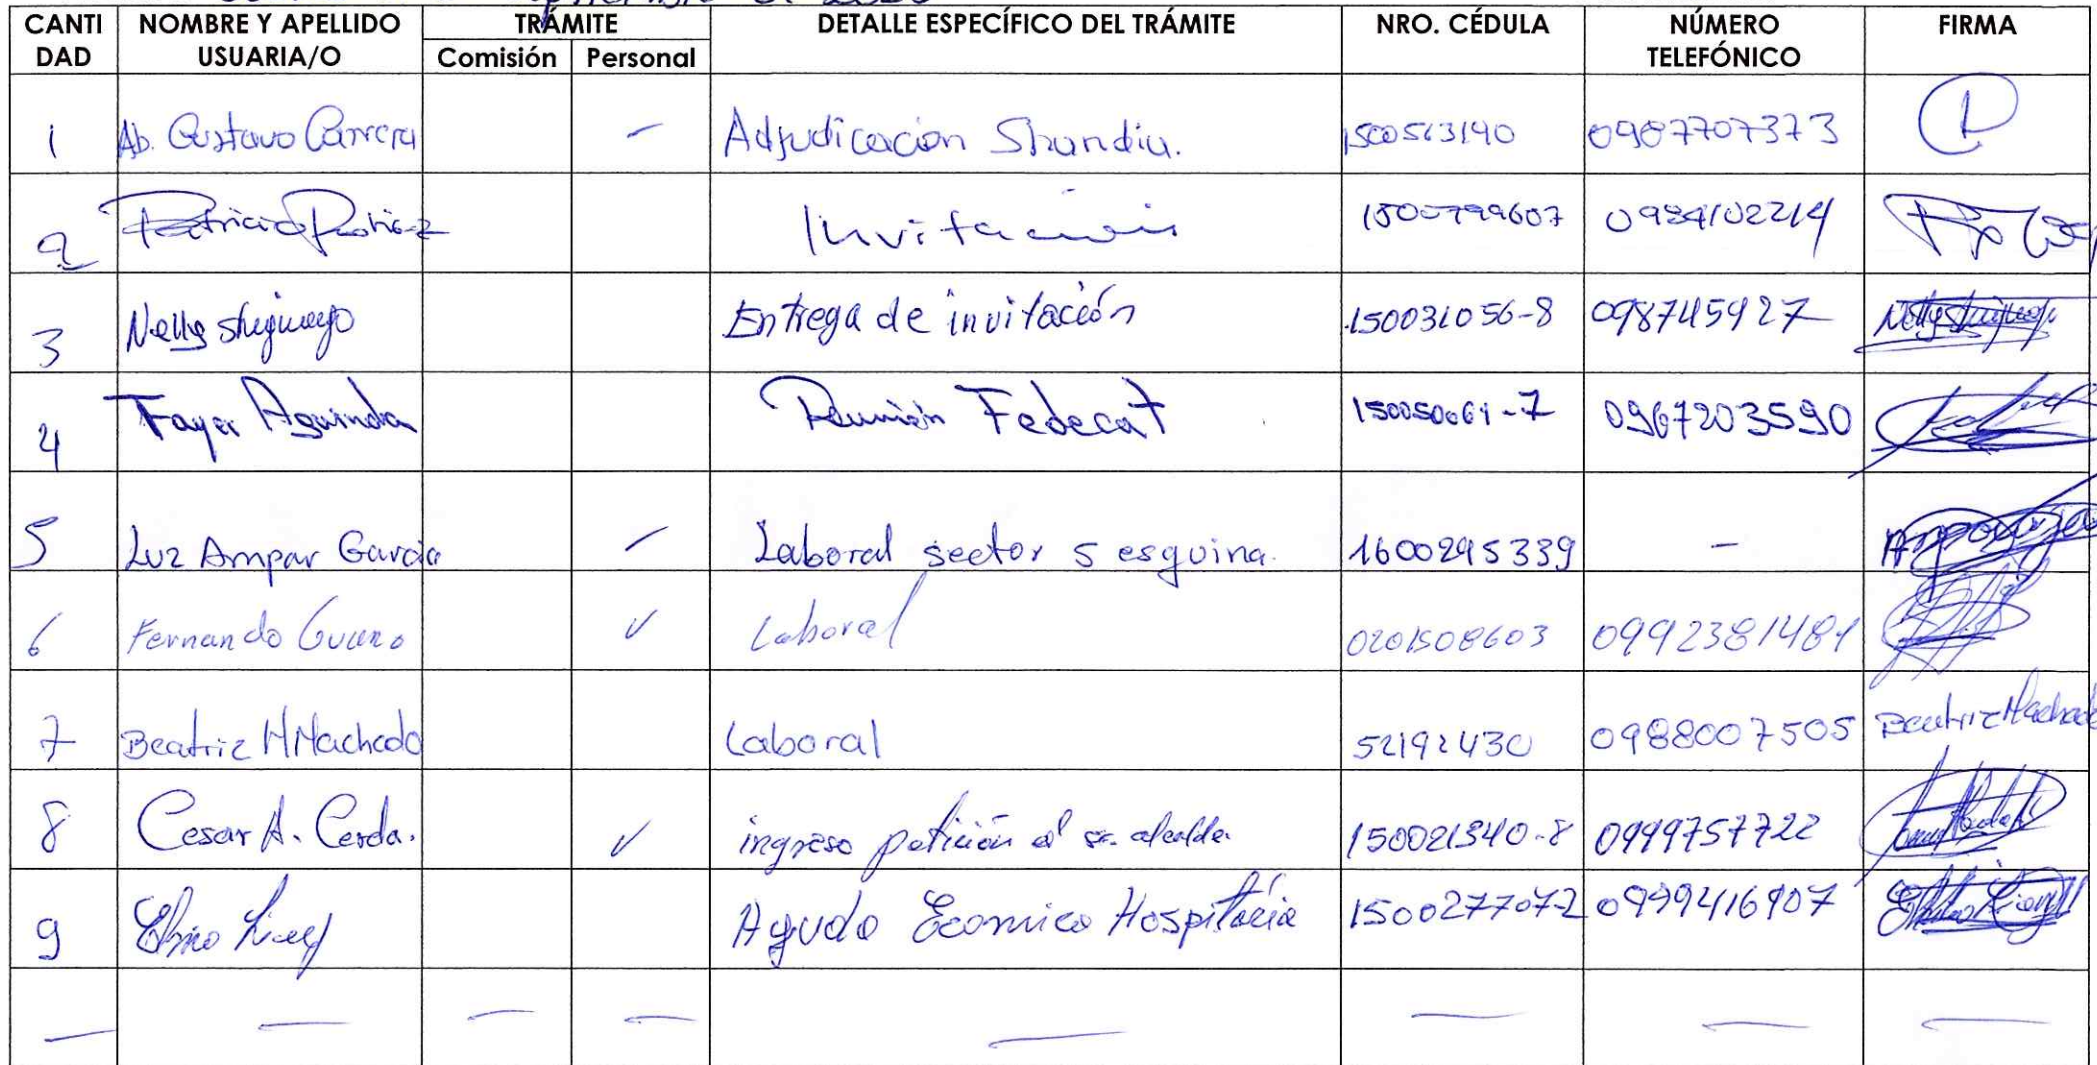 CANTI DAD | NOMBRE Y APELLIDO USUARIA/O | TRÁMITE | DETALLE ESPECÍFICO DEL TRÁMITE | NRO. CÉDULA | NÚMERO TELEFÓNICO | FIRMA
Comisión | Personal
1 | Ab. Gustavo Carrera | – | Adjudicacion Shandia. | 0987707373
2 | Patricia | Invitación | 1500799607 | 0984102214
3 | Nelly Shiguango | Entrega de invitación | 150031056-8 | 098745927 | Nelly Shiguango
4 | Aguinda | Reunión Fedecat | 150050061-7 | 0967203590
5 | Luz Ampar Garcia | – | Laboral sector 5 esquina. | 1600295339 | –
6 | Fernando | ✓ | Laboral | 0201508603 | 0992381481
7 | Beatriz Machado | Laboral | 52192430 | 0988007505 | Beatriz Machado
8 | Cesar A. Cerda. | ✓ | ingreso petición al sr. alcalde | 150021340-8 | 0999757722
9 | Ayuda Ecomica Hospitalaria | 150027707-2 | 0999416907
— | — | — | — | — | — | — | —